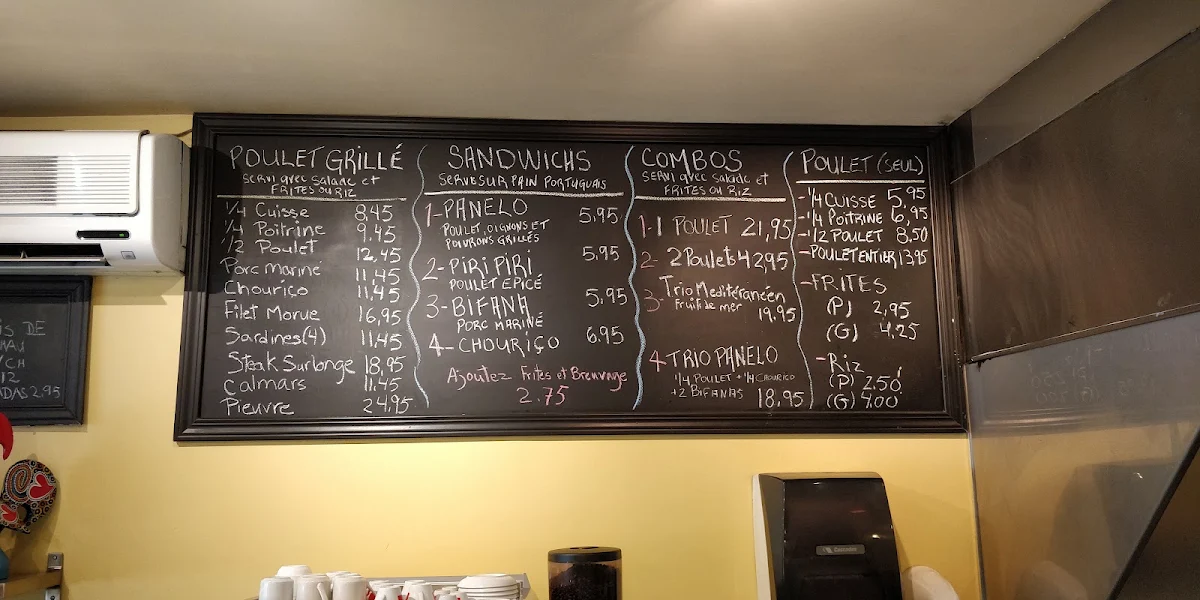 POULET GRILLÉ
SERVI avec salade et
FRITES OU RIZ
1/4 Cuisse 8,45
1/4 Poitrine 9.45
1/2 Poulet 12,45
Porc mariné 11,45
Chouriço 11,45
Filet Morue 16,95
Sardines(4) 11.45
Steak Surlonge 18,95
Calmars 11.45
Pieuvre 24,95
SANDWICHS
SERVE SUR PAIN PORTUGUAIS
1-PANELO 5,95
POULET, OIGNONS ET
POIVRONS GRILLÉS
2-PIRI PIRI 5.95
POULET ÉPICÉ
3-BIFANA 5,95
PORC MARINÉ
4-CHOURIÇO 6.95
Ajoutez Frites et Breuvage
2.75
COMBOS
SERVI avec salade et
FRITES OU RIZ
1-1 POULET 21,95
2- 2 Poulets 42,95
3- Trio Mediteráncén
Fruits de mer
19.95
4-TRIO PANELO
1/4 POULET + 1/4 CHOURICO
+2 BIFANAS 18,95
POULET (SEUL)
-1/4 CUISSE 5,95
-1/4 POITRINE 6,95
-1/2 POULET 8,50
-POULET ENTIER 13,95
-FRITES
(P) 2,95
(G) 4,25
-Riz
(P) 2.50
(G) 4.00
S DE
2.95